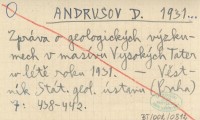 ANDRUSOV D. 1931...
Zpráva o geologických výzku-
mech v masivu Vysokých Tater
v létě roku 1931. — Věst-
ník Stát. geol. ústavu (Praha)
7: 438-442.